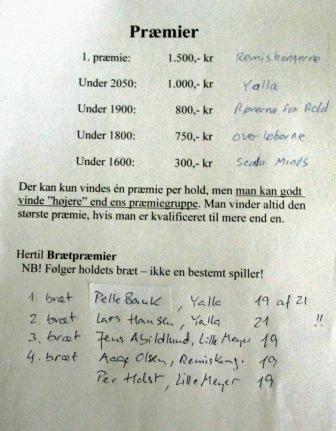 Præmier
1. præmie: 1.500,- kr Remiskongerne
Under 2050: 1.000,- kr Yalla
Under 1900: 800,- kr Røverne fra Rold
Under 1800: 750,- kr overløberne
Under 1600: 300,- kr Scoda Minds
Der kan kun vindes én præmie per hold, men man kan godt
vinde "højere" end ens præmiegruppe. Man vinder altid den
største præmie, hvis man er kvalificeret til mere end en.
Hertil Brætpræmier
NB! Følger holdets bræt – ikke en bestemt spiller!
1. bræt Pelle Bank, Yalla 19 af 21
2. bræt Lars Hansen, Yalla 21 !!
3. bræt Jens Abildlund, Lille Meyer 19
4. bræt Aage Olsen, Remiskong. 19
Per Holst, Lille Meyer 19